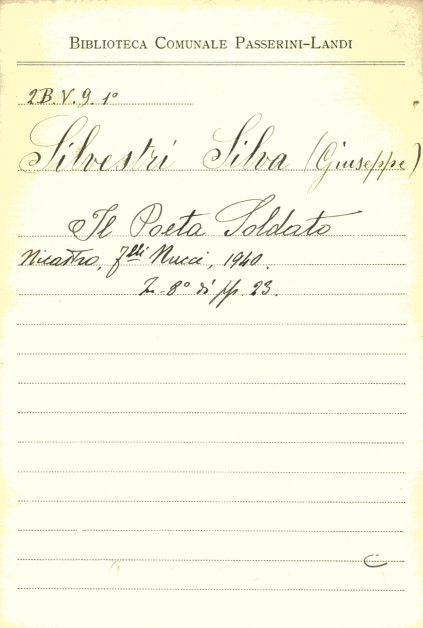 BIBLIOTECA COMUNALE PASSERINI-LANDI
2B.V.9.1º
Silvestri Silva (Giuseppe)
Il Poeta Soldato
Nicastro, Flli Nucci, 1940.
In-8º di pp. 23.
C